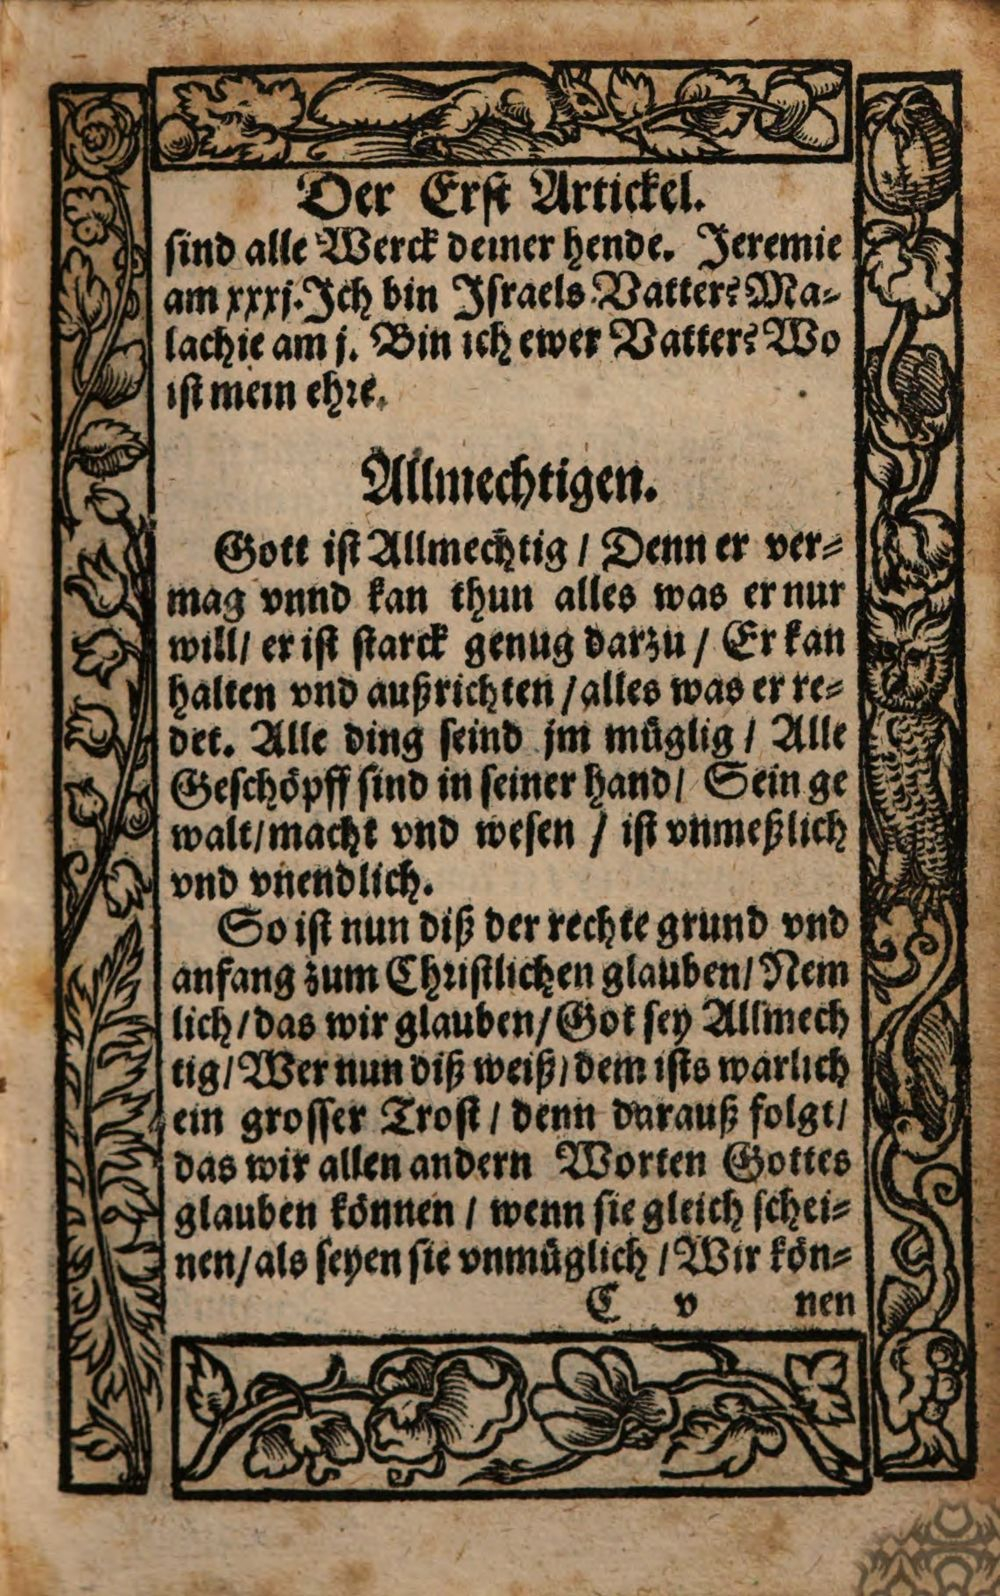 Der Erst Artickel.
sind alle Werck deiner hende. Jeremie
am xxxj. Ich bin Israels Vatter? Ma-
lachie am j. Bin ich ewer Vatter? Wo
ist mein ehre.
Allmechtigen.
Gott ist Allmechtig / Denn er ver-
mag vnnd kan thun alles was er nur
will / er ist starck genug darzu / Er kan
halten vnd außrichten / alles was er re-
det. Alle ding seind jm müglig / Alle
Geschöpff sind in seiner hand / Sein ge
walt / macht vnd wesen / ist vnmeßlich
vnd vnendlich.
So ist nun diß der rechte grund vnd
anfang zum Christlichen glauben / Nem
lich / das wir glauben / Got sey Allmech
tig / Wer nun diß weiß / dem ists warlich
ein grosser Trost / denn darauß folgt /
das wir allen andern Worten Gottes
glauben können / wenn sie gleich schei-
nen / als seyen sie vnmüglich / Wir kön-
C v nen